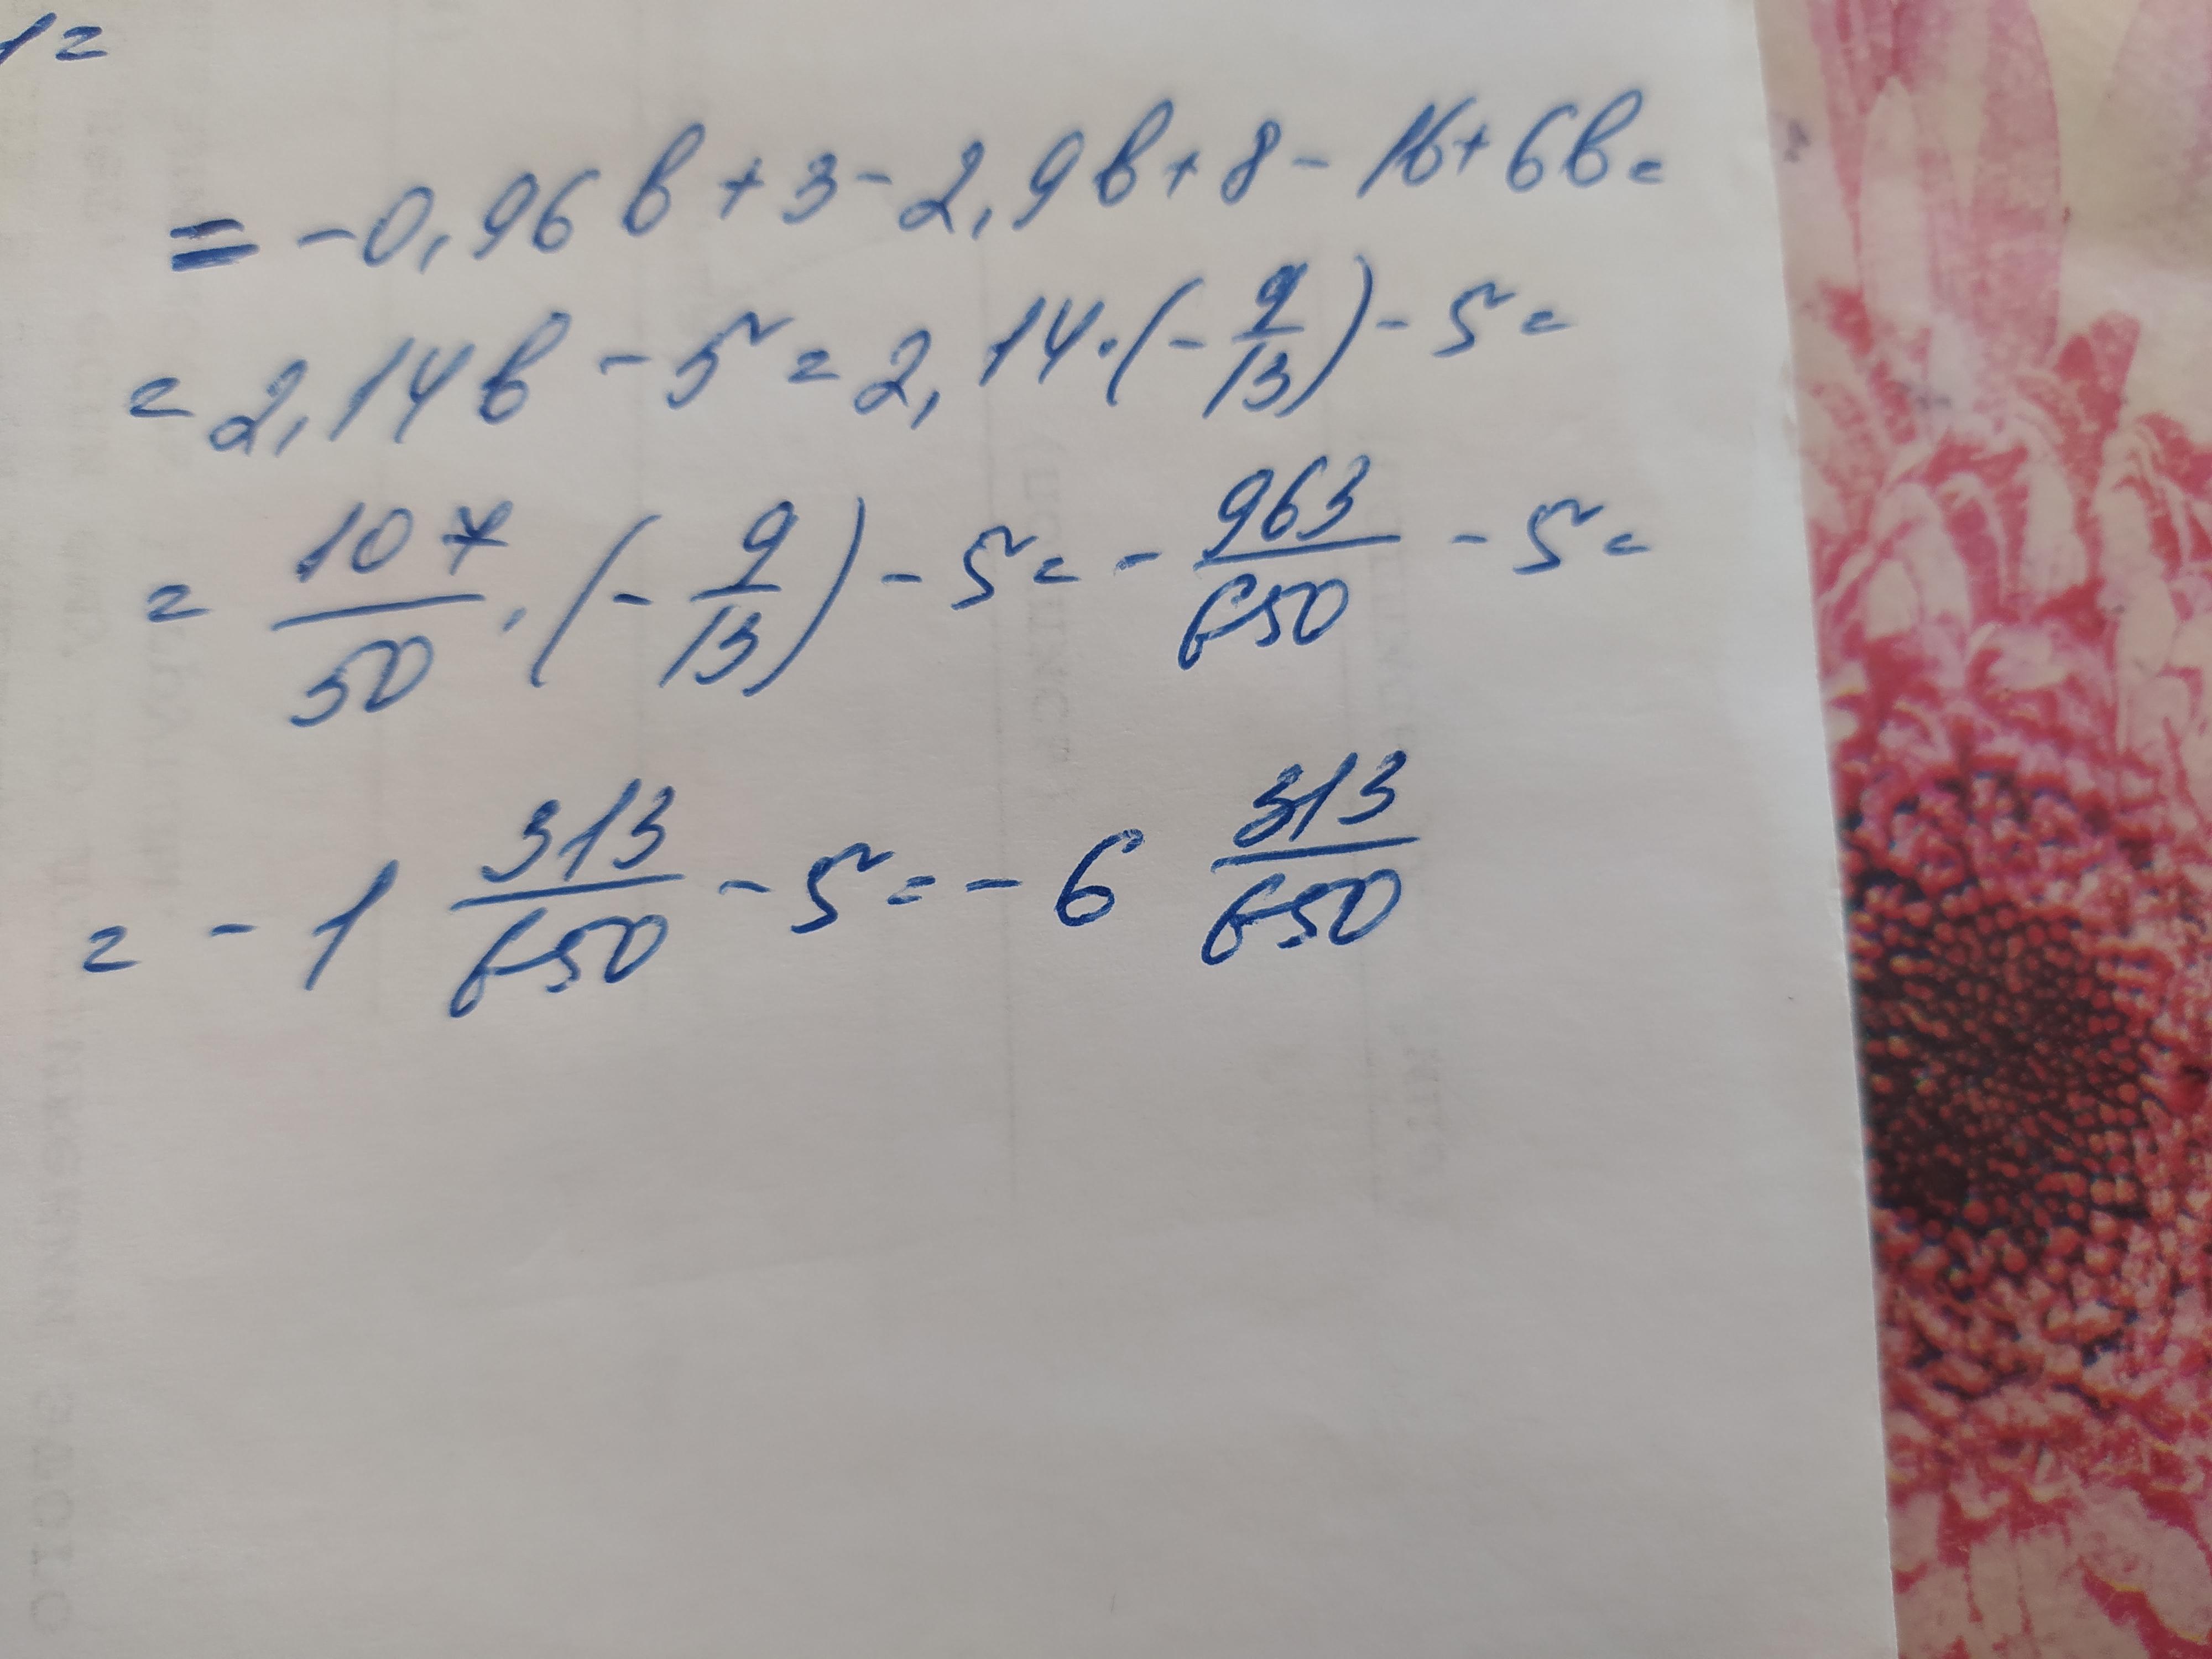 1=
= -0,96в+3-2,9в+8-16+6в=
= 2,14в-5=2,14·(-9/13)-5=
= 107/50·(-9/13)-5=-963/650-5=
= -1 313/650-5=-6 313/650